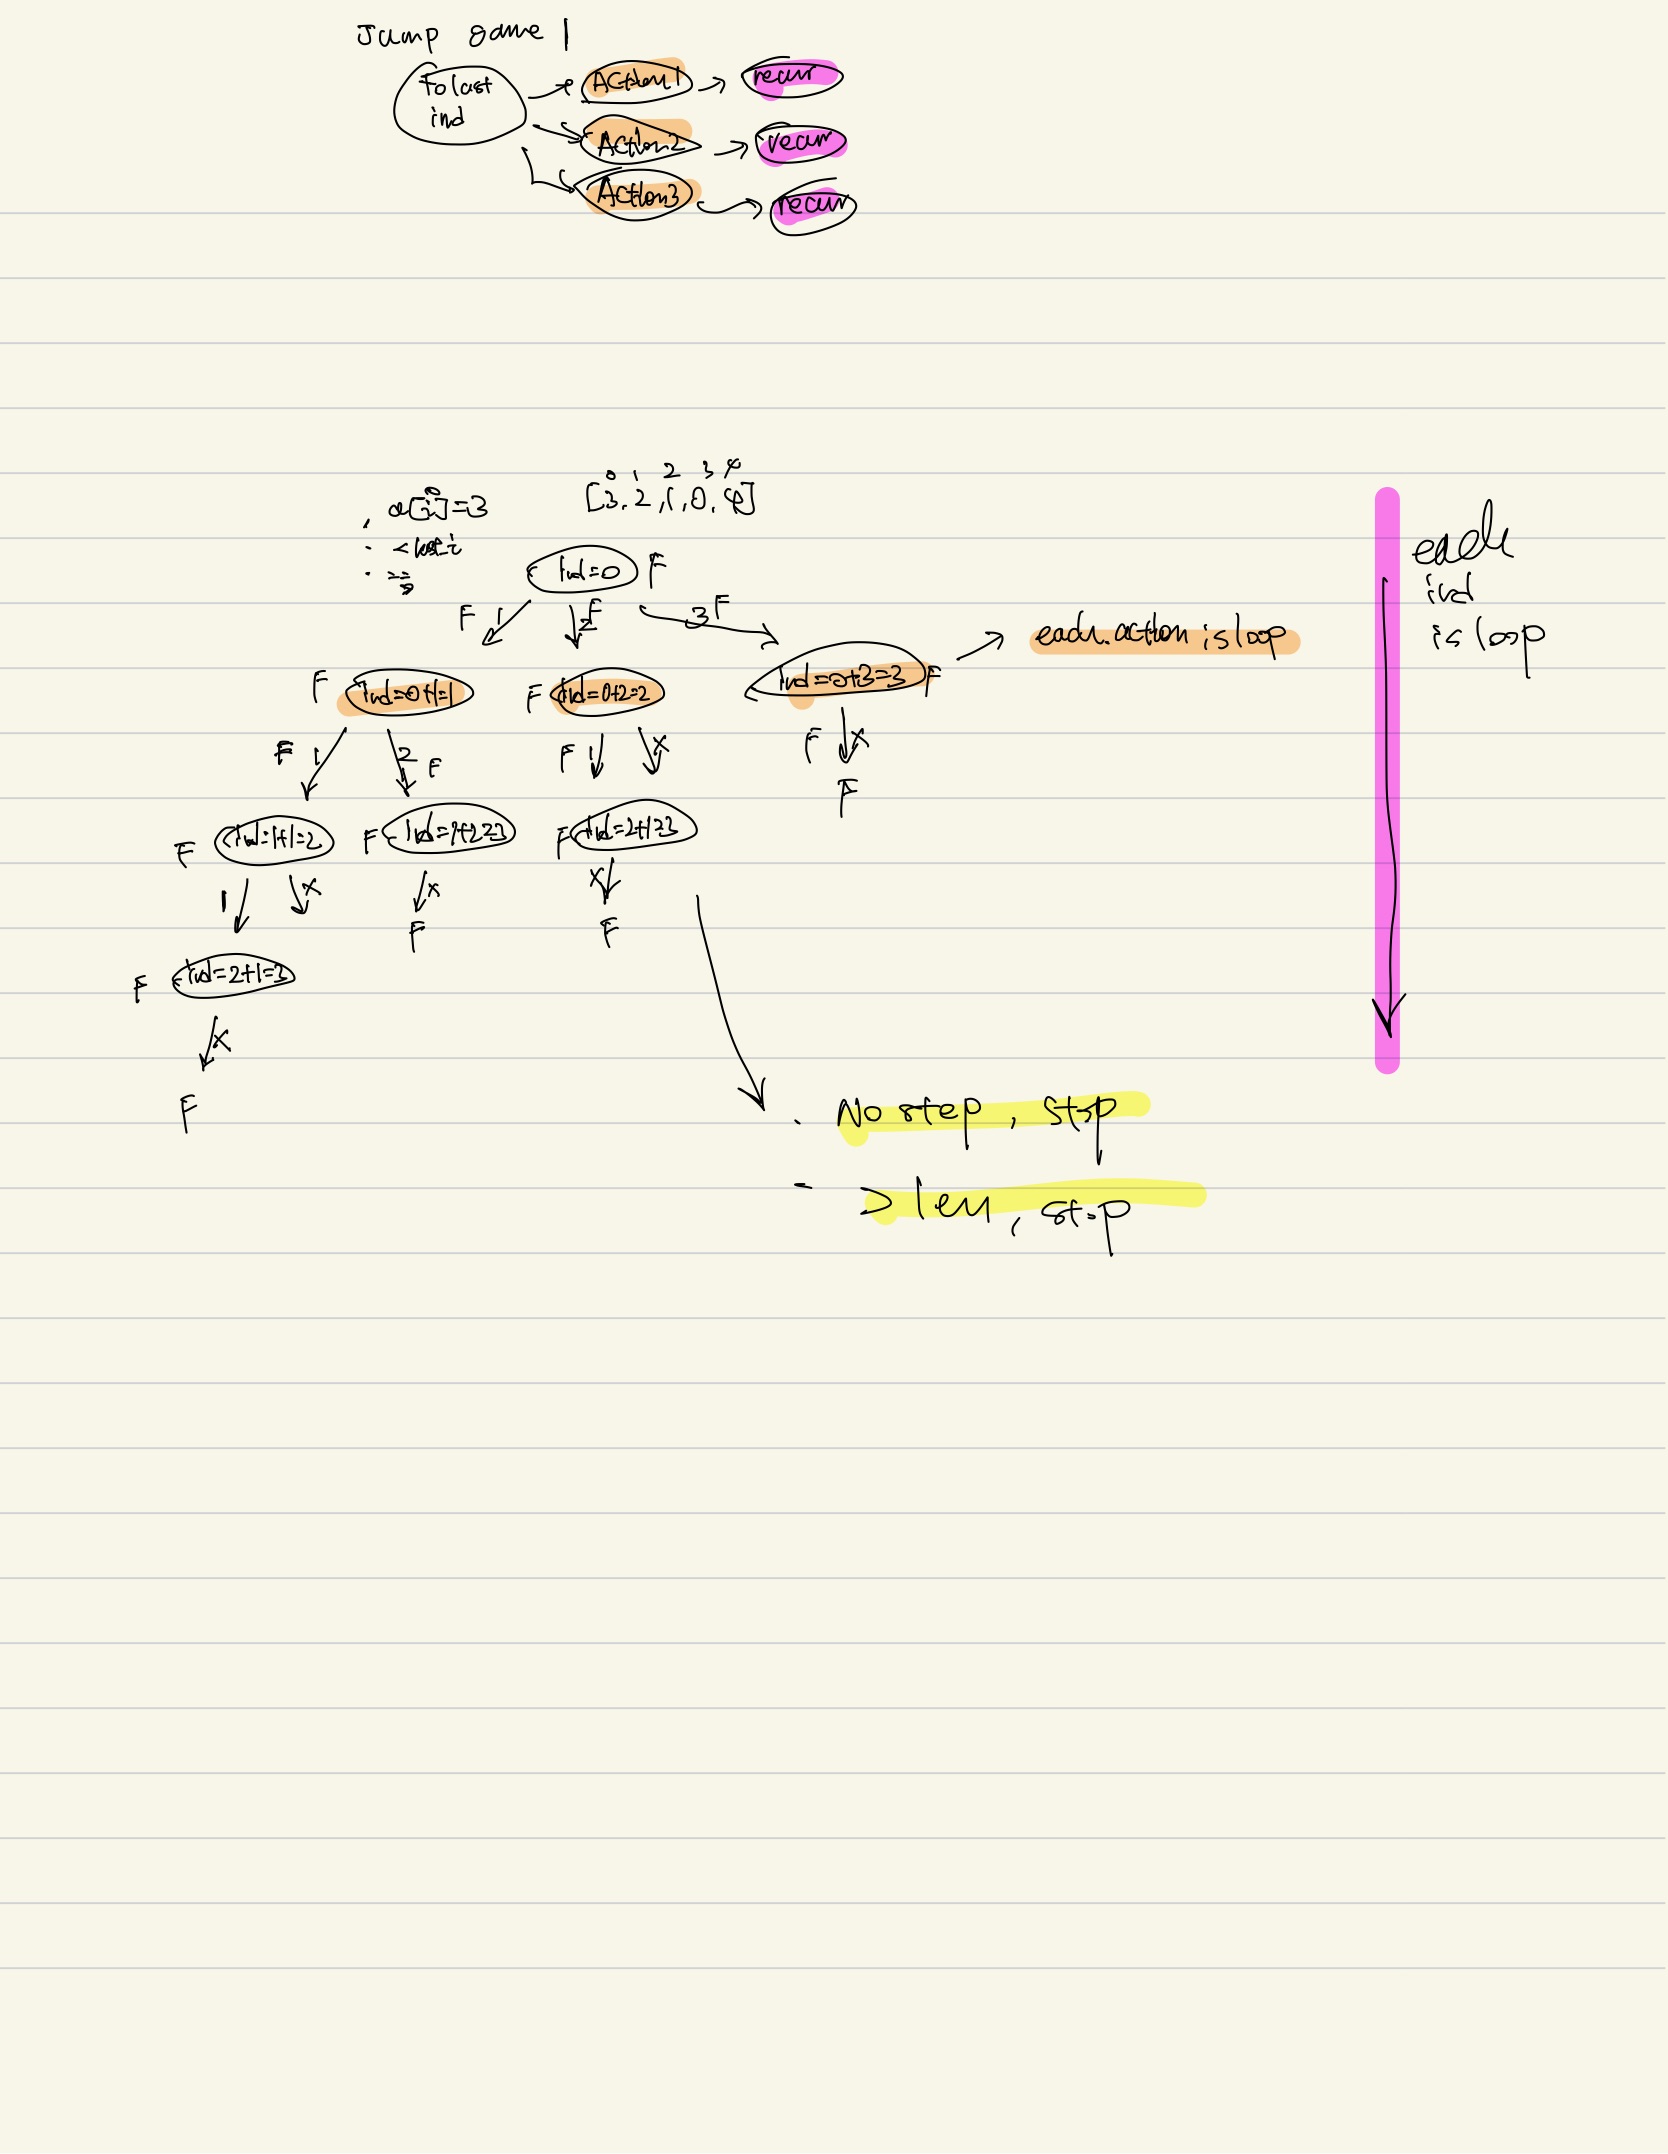 Jump game 1
To last
ind
Action1
recur
Action2
recur
Action3
recur
0 1 2 3 4
[3, 2, 1, 0, 4]
a[i]=3
0
ind=0 F
F 1
2 F
3 F
each action is loop
each
ind
is loop
F ind=0+1=1
F ind=0+2=2
ind=0+3=3 F
F 1
2 F
F 1
x
F x
F
F ind=1+1=2
F ind=1+2=3
F ind=2+1=3
1
x
x
F
x
F
F ind=2+1=3
x
F
· No step, stop
- > len, stop